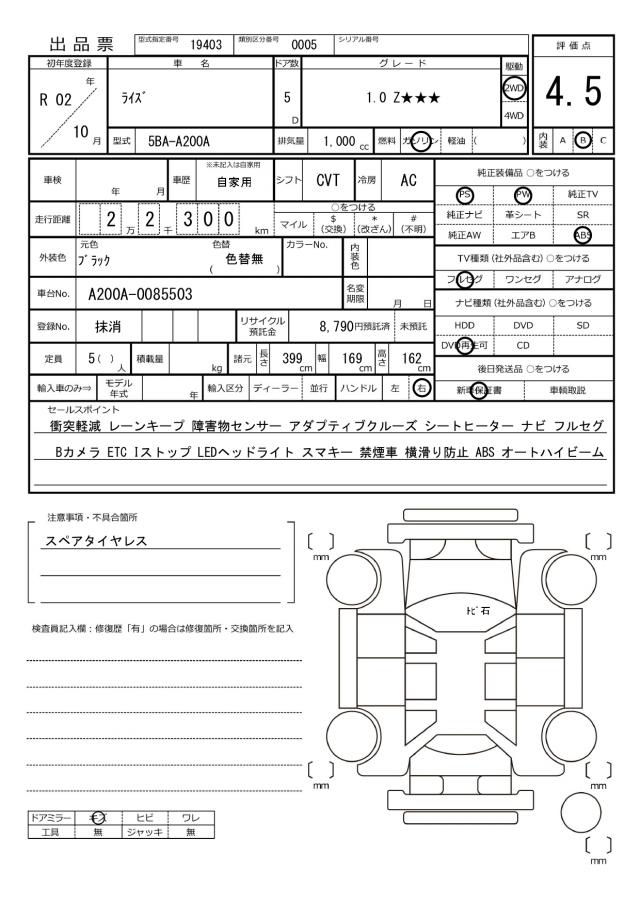 出品票
型式指定番号 19403 類別区分番号 0005 シリアル番号
評価点
初年度登録 車名 ドア数 グレード 駆動
R 02 年 / 10 月 ﾗｲｽﾞ 5 D 1.0 Z★★★ 2WD 4WD
4.5
型式 5BA-A200A 排気量 1,000 cc 燃料 ガソリン 軽油 ( ) 内装 A B C
車検 年 月 車歴 ※未記入は自家用 自家用 シフト CVT 冷房 AC
純正装備品 ○をつける
PS PW 純正TV
純正ナビ 革シート SR
純正AW エアB ABS
走行距離 2 万 2 千 300 km
○をつける
マイル $ (交換) * (改ざん) # (不明)
外装色 元色 ﾌﾞﾗｯｸ 色替 ( 色替無 ) カラーNo. 内装色
TV種類 (社外品含む) ○をつける
フルセグ ワンセグ アナログ
車台No. A200A-0085503 名変期限 月 日
ナビ種類 (社外品含む) ○をつける
HDD DVD SD
DVD再生可 CD
登録No. 抹消 リサイクル預託金 8,790円預託済 未預託
定員 5 ( ) 人 積載量 kg 諸元 長さ 399 cm 幅 169 cm 高さ 162 cm
後日発送品 ○をつける
新車保証書 車輌取説
輸入車のみ⇒ モデル年式 年 輸入区分 ディーラー 並行 ハンドル 左 右
セールスポイント
衝突軽減 レーンキープ 障害物センサー アダプティブクルーズ シートヒーター ナビ フルセグ
Bカメラ ETC Iストップ LEDヘッドライト スマキー 禁煙車 横滑り防止 ABS オートハイビーム
注意事項・不具合箇所
スペアタイヤレス
検査員記入欄：修復歴「有」の場合は修復箇所・交換箇所を記入
〔 〕 mm
〔 〕 mm
ﾄﾋﾞ石
〔 〕 mm
〔 〕 mm
〔 〕 mm
ドアミラー キズ ヒビ ワレ
工具 無 ジャッキ 無